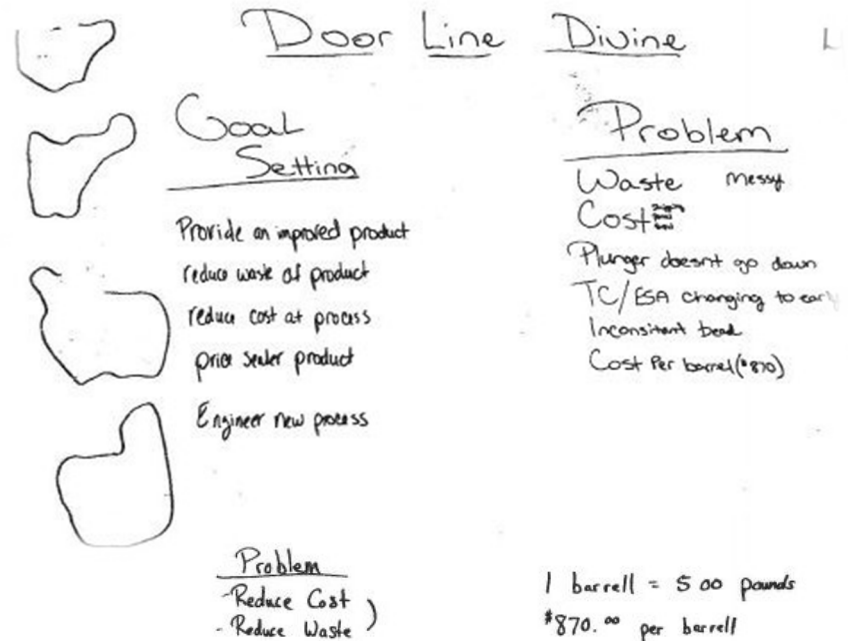 Door Line Divine
L
Goal
Setting
Provide an improved product
reduce waste of product
reduce cost at process
price sealer product
Engineer new process
Problem
Waste messy
Cost
Plunger doesnt go down
TC/ESA changing to early
Inconsitant bead
Cost Per barrel ($870)
Problem
- Reduce Cost
- Reduce Waste
1 barrell = 500 pounds
$870.00 per barrell